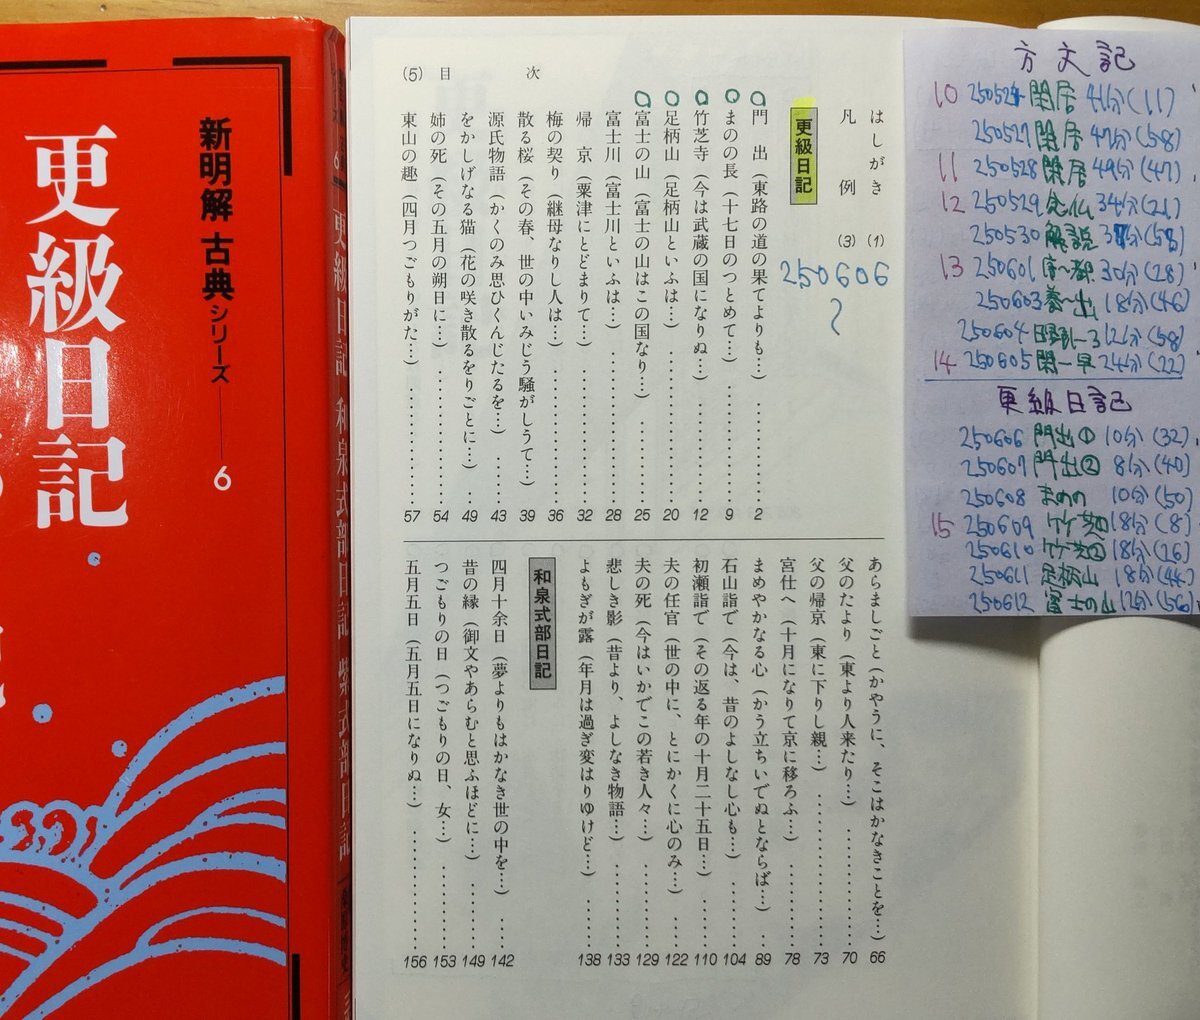 新明解 古典シリーズ 6
更級日記
更級日記 和泉式部日記 紫式部日記
(5) 目次
はしがき (1)
凡例 (3)
250606
更級日記
門出 (東路の道の果てよりも…) 2
まのの長 (十七日のつとめて…) 9
竹芝寺 (今は武蔵の国になりぬ…) 12
足柄山 (足柄山といふは…) 20
富士の山 (富士の山はこの国なり…) 25
富士川 (富士川といふは…) 28
帰京 (粟津にとどまりて…) 32
梅の契り (継母なりし人は…) 36
散る桜 (その春、世の中いみじう騒がしうて…) 39
源氏物語 (かくのみ思ひくんじたるを…) 43
をかしげなる猫 (花の咲き散るをりごとに…) 49
姉の死 (その五月の朔日に…) 54
東山の趣 (四月つごもりがた…) 57
あらましごと (かやうに、そこはかなきことを…) 66
父のたより (東より人来たり…) 70
父の帰京 (東に下りし親…) 73
宮仕へ (十月になりて京に移ろふ…) 78
まめやかなる心 (かう立ちいでぬとならば…) 89
石山詣で (今は、昔のよしなし心も…) 104
初瀬詣で (その返る年の十月二十五日…) 110
夫の任官 (世の中に、とにかくに心のみ…) 122
夫の死 (今はいかでこの若き人々…) 129
悲しき影 (昔より、よしなき物語…) 133
よもぎが露 (年月は過ぎ変はりゆけど…) 138
和泉式部日記
四月十余日 (夢よりもはかなき世の中を…) 142
昔の縁 (御文やあらむと思ふほどに…) 149
つごもりの日 (つごもりの日、女…) 153
五月五日 (五月五日になりぬ…) 156
方丈記
10 250524 閑居 41分(11)
250527 閑居 47分(58)
11 250528 閑居 49分(47)
12 250529 念仏 34分(21)
250530 解説 37分(58)
13 250601 30分(28)
250603 18分(46)
250604 12分(58)
14 250605 24分(22)
更級日記
250606 門出① 10分(32)
250607 門出② 8分(40)
250608 まのの 10分(50)
15 250609 竹芝① 18分(8)
250610 竹芝② 18分(26)
250611 足柄山 18分(44)
250612 富士の山 12分(56)